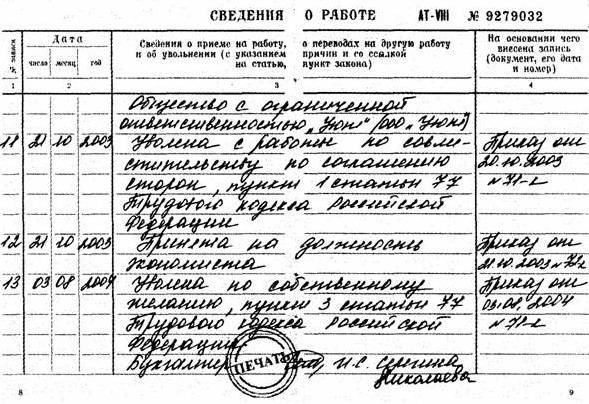 СВЕДЕНИЯ О РАБОТЕ АТ-VIII № 9279032
№ записи
Дата
Сведения о приеме на работу, о переводах на другую работу
и об увольнении (с указанием причин и со ссылкой
на статью, пункт закона)
На основании чего
внесена запись
(документ, его дата
и номер)
число месяц год
1 2 3 4
Общество с ограниченной
ответственностью „Уют" (ООО „Уют")
11 21 10 2003 Уволена с работы по совме- Приказ от
стительству по соглашению 20.10.2003
сторон, пункт 1 статьи 77 № 71-к
Трудового кодекса Российской
Федерации
12 21 10 2003 Принята на должность Приказ от
экономиста 21.10.2003 № 72-к
13 03 08 2004 Уволена по собственному Приказ от
желанию, пункт 3 статьи 77 03.08.2004
Трудового кодекса Российской № 71-к
Федерации
Бухгалтер И.С. Серегина
ПЕЧАТЬ
Николаева
8 9